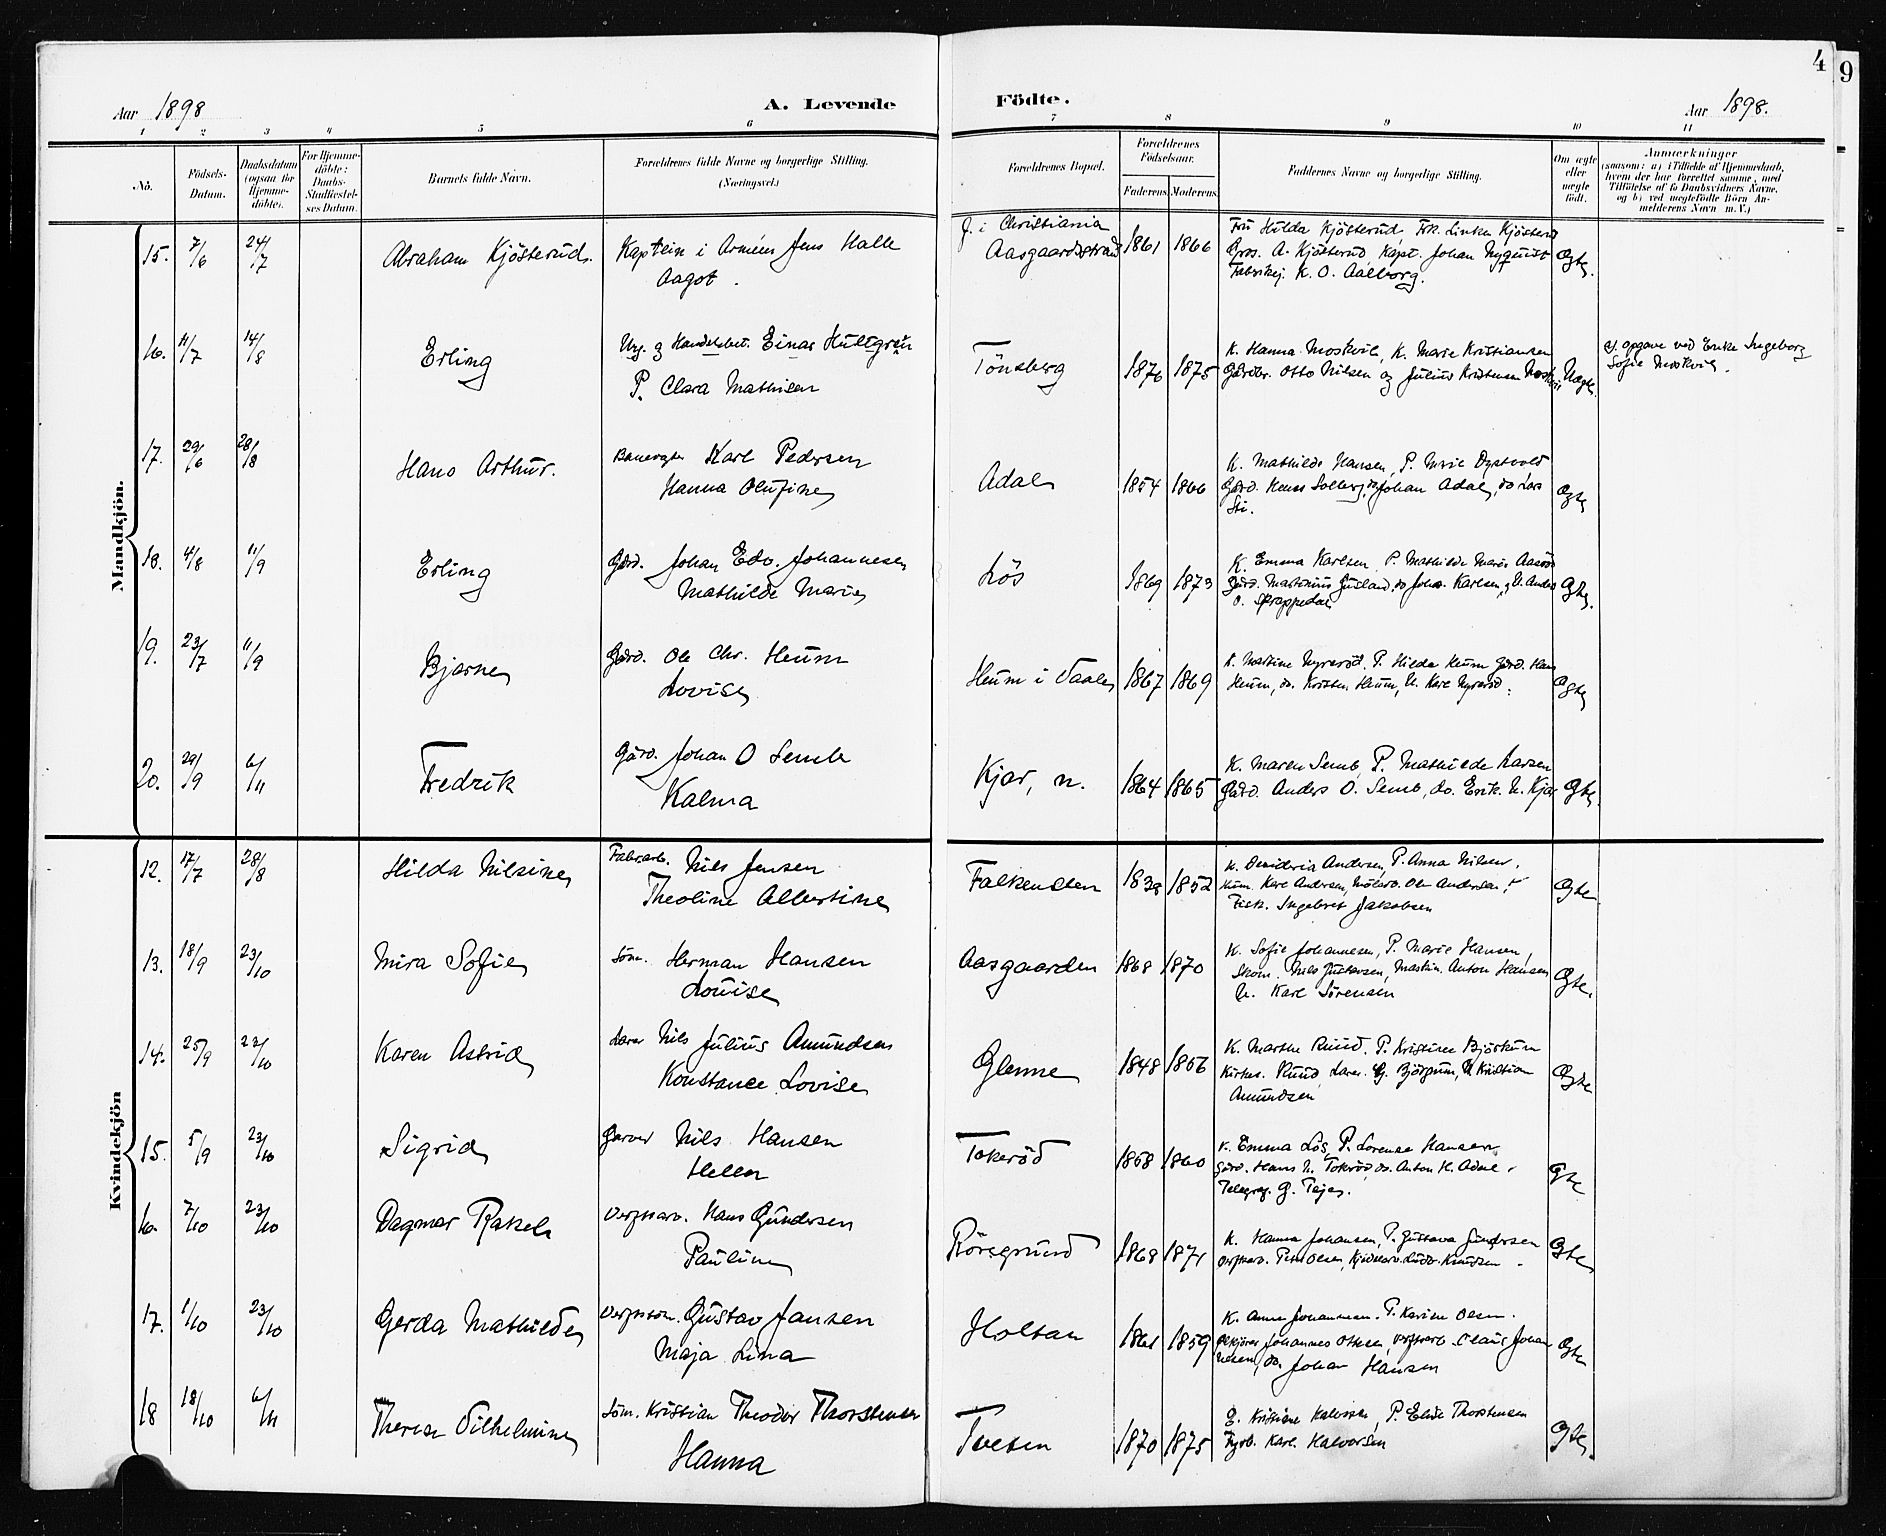 4
9
Aar 1898
A. Levende
Födte.
Aar 1898.
1 2 3 4 5 6 7 8 9 10 11
No.
Födsels-Datum.
Daabsdatum (ogsaa for Hjemme-döbte).
For Hjemme-döbte: Daabs-Stadfæstel-ses Datum.
Barnets fulde Navn.
Forældrenes fulde Navne og borgerlige Stilling.
(Næringsvei.)
Forældrenes Bopæl.
Forældrenes Födselsaar.
Faderens
Moderens
Faddernes Navne og borgerlige Stilling.
Om ægte eller uægte födt.
Anmærkninger
(saasom: a) i Tilfælde af Hjemmedaab,
hvem der har forrettet samme, med
Tilföielse af to Daabsvidners Navne,
og b) ved uægtefödte Börn An-
melderens Navn m. V.)
Mandkjön.
15. 7/6 24/7 Abraham Kjösterud. Kaptein i Armeen Jens Halle
Aagot.
f. i Christiania
Aasgaardstrand 1861 1866
Fru Hilda Kjösterud Frk. Linken Kjösterud
Gros. A. Kjösterud, Kapt. Johan Nyquist
Fabrikej. K. O. Aalborg.
Ægte.
16. 11/7 14/8 Erling
Ung. og Handelsbet. Einar Hultgren
P. Clara Mathisen
Tönsberg 1876 1875
K. Hanna Moskvil, K. Marie Kristiansen
Gårdbr. Otto Nilsen og Julius Kristensen Moskvil
Uægte
e. opgave ved Enke Ingeborg
Sofie Moskvil.
17. 29/6 28/8 Hans Arthur.
Banevogter Karl Pedersen
Hanna Olufine
Adal 1854 1866
K. Mathilde Hansen, P. Marie
Gård. Solberg, do Johan Adal, do Lars
Sti.
Ægte
18. 4/8 11/9 Erling
Gård. Johan Edv. Johannesen
Mathilde Marie
Lös 1869 1873
K. Emma Karlsen P. Mathilde Marie
Gård. Martinius do Johs. Karlsen, U. Anders
O. Skrappedal
Ægte.
19. 23/7 11/9 Bjarne
Gård. Ole Chr. Heum
Lovise
Heum i Vaale 1867 1869
K. Martine Nyreröd. P. Hilda Heum Gård. Hans
Heum, do. Kristen Heum, U. Karl Nyreröd.
Ægte
20. 29/9 6/11 Fredrik
Gård. Johan O Semb
Kalma
Kjar, n. 1864 1865
K. Maren Semb, P. Mathilde Larsen
Gård. Anders O. Semb, do. Erik N. Kjar
Ægte.
Kvindekjön
12. 17/7 28/8 Hilda Nilsine
Fabr.arb. Nils Jensen
Theoline Albertine
Falkensten 1838 1852
K. Desideria Andersen, P. Anna Nilsen.
Karl Andersen, Ole Andersen,
Fisk. Ingebret Jakobsen
Ægte
13. 18/9 23/10 Mina Sofie
Söm. Herman Hansen
Lovise
Aasgaarden 1868 1870
K. Sofie Johannesen, P. Marie Hansen,
Skom. Nils Gustavsen, Maskin. Anton Hansen
U. Karl Sörensen
Ægte.
14. 25/9 23/10 Karen Astrid
Lærer Nils Julius Amundsen
Konstance Lovise
Glenne 1848 1856
K. Marthe Ruud. P. Kristine Björkum
Kirkes. Ruud, Lærer G. Björgum, U. Kristian
Amundsen
Ægte
15. 5/9 23/10 Sigrid
Garver Nils Hansen
Helen
Tokeröd 1858 1860
K. Emma Lös, P. Lorense Hansen
Gård. Hans N. Tokeröd, do. Anton H. Adal.
Telegraf. G. Teje.
Ægte
16. 7/10 23/10 Dagmar Rakel
Verftsarb. Hans Gundersen
Pauline
Rörsgrund 1868 1871
K. Hanna Johansen, P. Gustava Gundersen
Verftsarb. Peter Olsen, Ludv. Knudsen.
Ægte
17. 1/10 23/10 Gerda Mathilde
Verftstöm. Gustav Jansen
Maja Lina
Holtan 1861 1859
K. Anna Johannesen. P. Karine Olsen.
Johannes Ottesen, Verftsarb. Claus Johan
nesen, do. Johan Hansen
Ægte
18 18/10 6/11 Therese Vilhelmine
Söm. Kristian Theodor Thorstensen
Hanna
Tveten 1870 1875
K. Kristiane Halvorsen, P. Elise Thorstensen
Fyrb. Karl Halvorsen
Ægte.